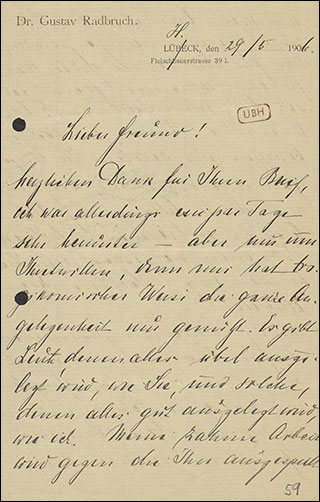 Dr. Gustav Radbruch.
H.
LÜBECK, den 29/5 1906.
Fleischhauerstrasse 39 I.
UBH
Lieber Freund!
herzlichen Dank für Ihren Brief,
ich war allerdings ein paar Tage
sehr — aber nur um
Ihretwillen, denn mir hat tra-
gikomischer Weise die ganze An-
gelegenheit nur genützt. Es gibt
Leute, denen alles übel ausge-
legt wird, wie Sie, und solche,
denen alles gut ausgelegt wird,
wie ich. Meine zahme Arbeit
wird gegen die Ihre ausgespielt
59